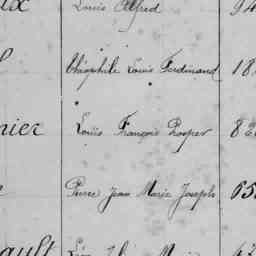 ux Louis Alfred 94
l Théophile Louis Ferdinand 18
nier Louis François Prosper 82
e Pierre Jean Marie Joseph 65
ault